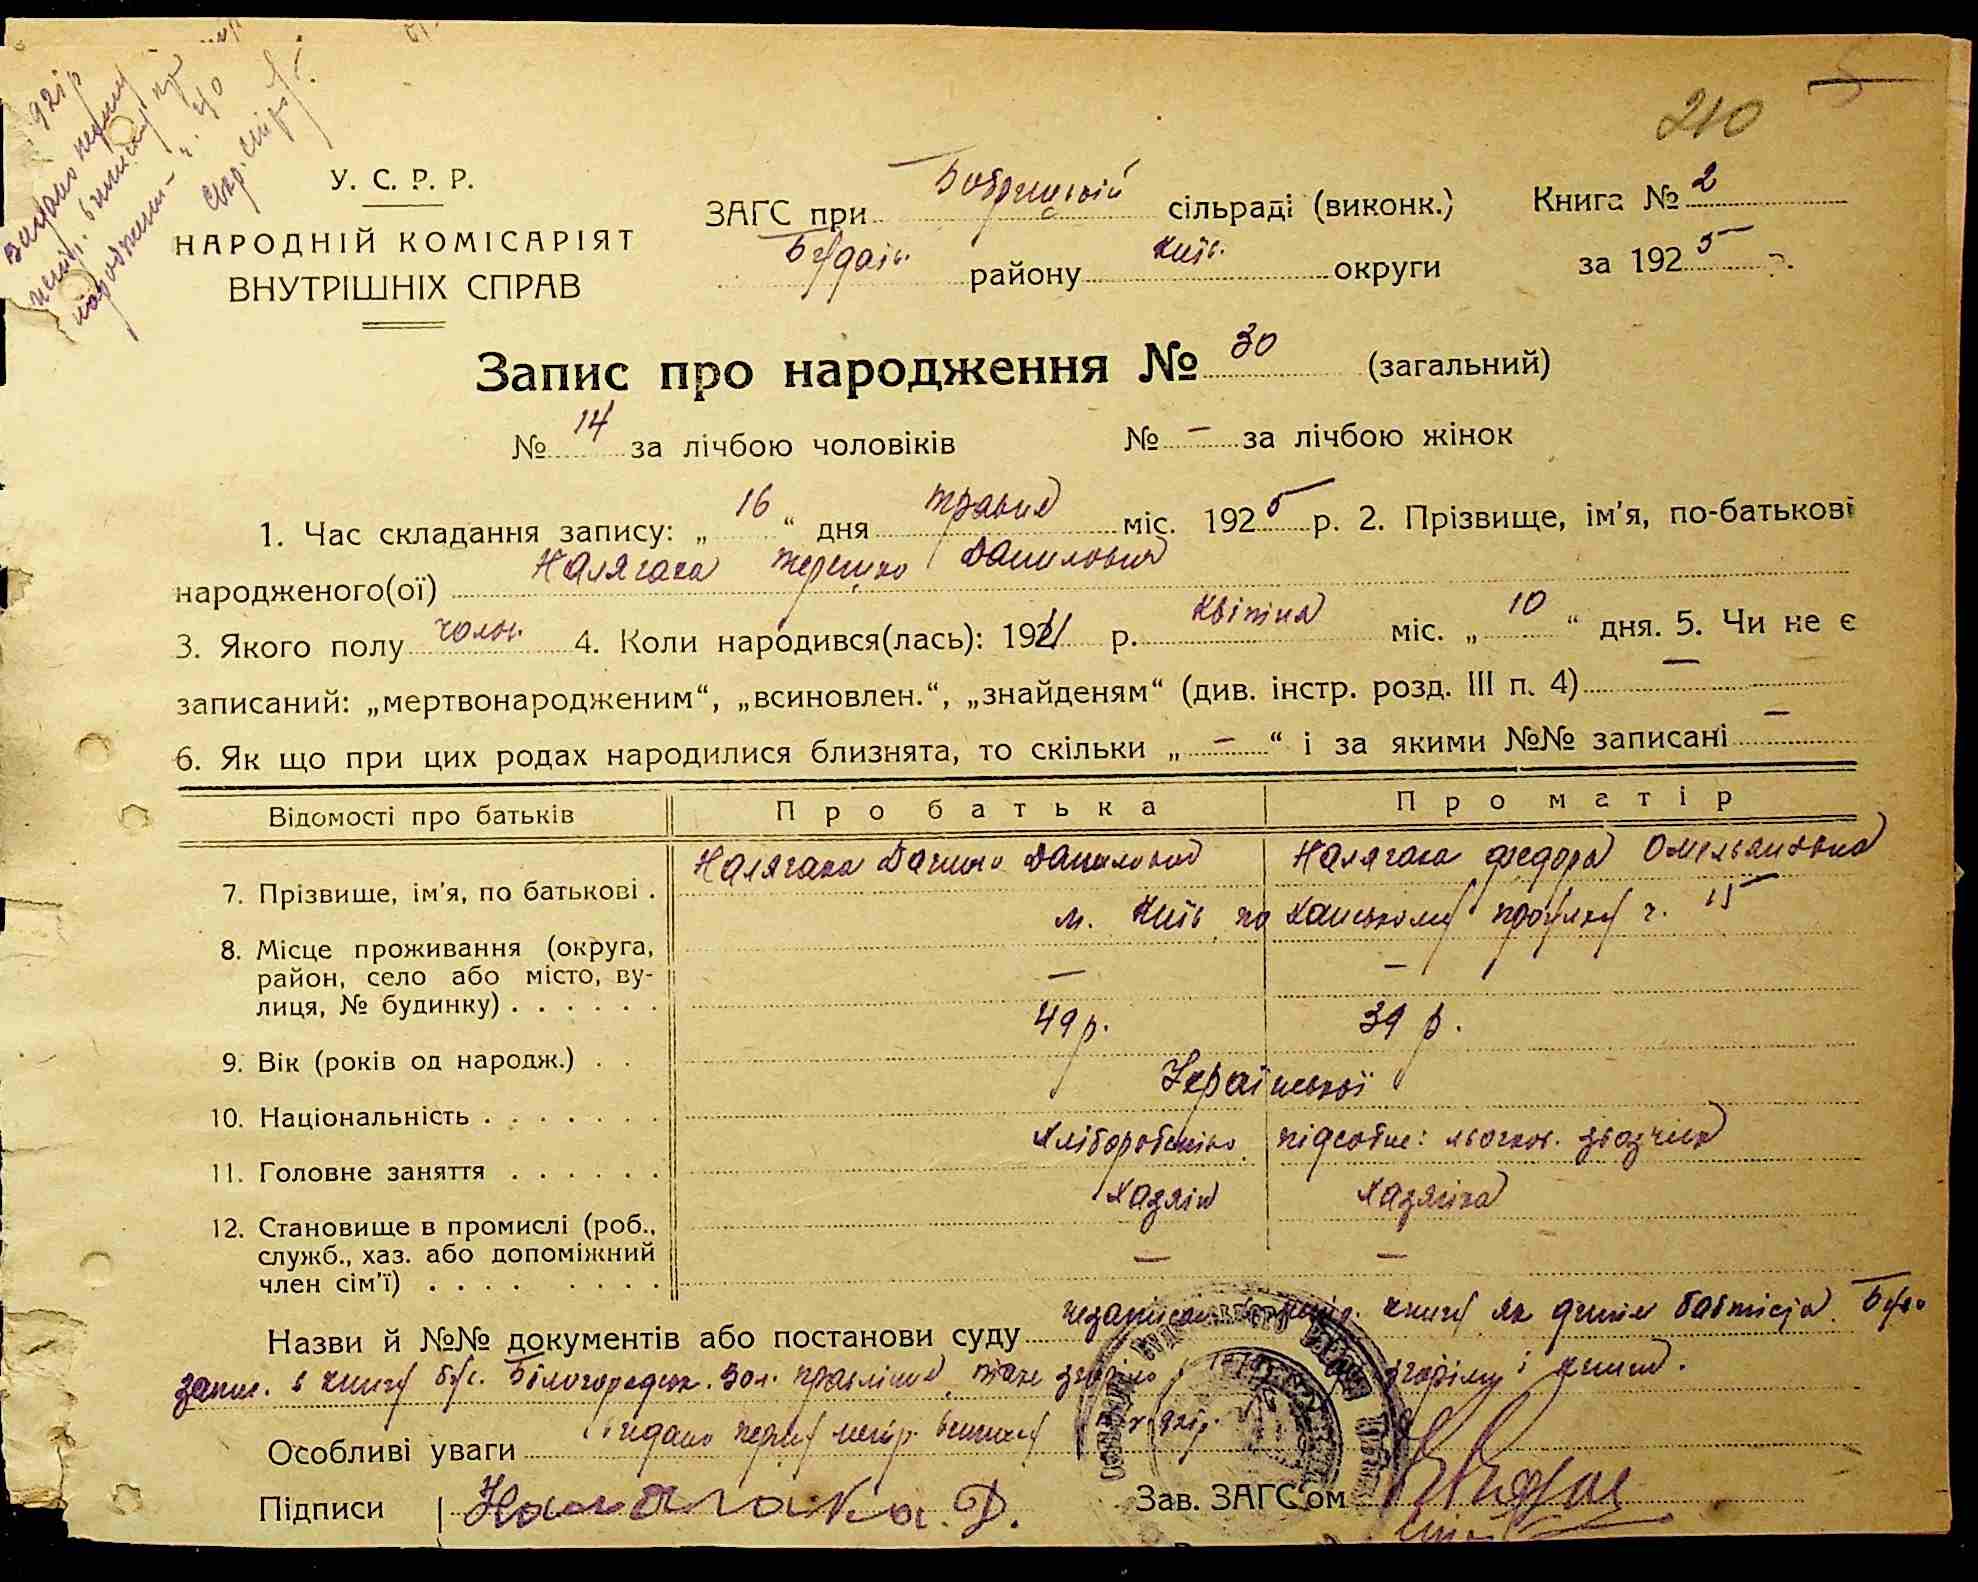 210
У. С. Р. Р.
НАРОДНІЙ КОМІСАРІЯТ
ВНУТРІШНІХ СПРАВ
ЗАГС при Бобрицькій сільраді (виконк.)
Будаїв. району Київ. округи
Книга № 2
за 1925 р.
Запис про народження № 30 (загальний)
№ 14 за лічбою чоловіків № — за лічбою жінок
1. Час складання запису: „ 16 “ дня травня міс. 1925 р. 2. Прізвище, ім'я, по-батькові
народженого(ої) Налягака Данилович
3. Якого полу чолов. 4. Коли народився(лась): 1921 р. квітня міс. „ 10 “ дня. 5. Чи не є
записаний: „мертвонародженим“, „всиновлен.“, „знайденям“ (див. інстр. розд. III п. 4) —
6. Як що при цих родах народилися близнята, то скільки „ — “ і за якими №№ записані —
Відомості про батьків Про батька Про матір
7. Прізвище, ім'я, по батькові . Налягака Данило Данилович Налягака Федора Омельянівна
8. Місце проживання (округа, м. Київ по провулку ч. 15
район, село або місто, ву- — —
лиця, № будинку) . . . . . .
9. Вік (років од народж.) . . 49 р. 39 р.
10. Національність . . . . . . . Української
11. Головне заняття . . . . . . Хліборобство підсобне: легков. звозчик
12. Становище в промислі (роб., хазяїн хазяїка
служб., хаз. або допоміжний — —
член сім'ї) . . . . . . . . .
Назви й №№ документів або постанови суду незаписан книгу як дитя баптиста. Було
запис. в книгу Білогородськ. вол. правління згоріло і книга.
Особливі уваги Видано метр. 1921р.
Підписи Налягака. Д. Зав. ЗАГС'ом